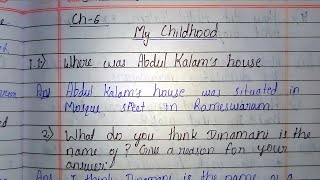 Ch-6
My Childhood
1.1) Where was Abdul Kalam's house
Ans Abdul Kalam's house was situated in
Mosque street in Rameswaram
2) What do you think Dinamani is the
name of? Give a reason for your
answer?
Ans I think Dinamani is the name of a